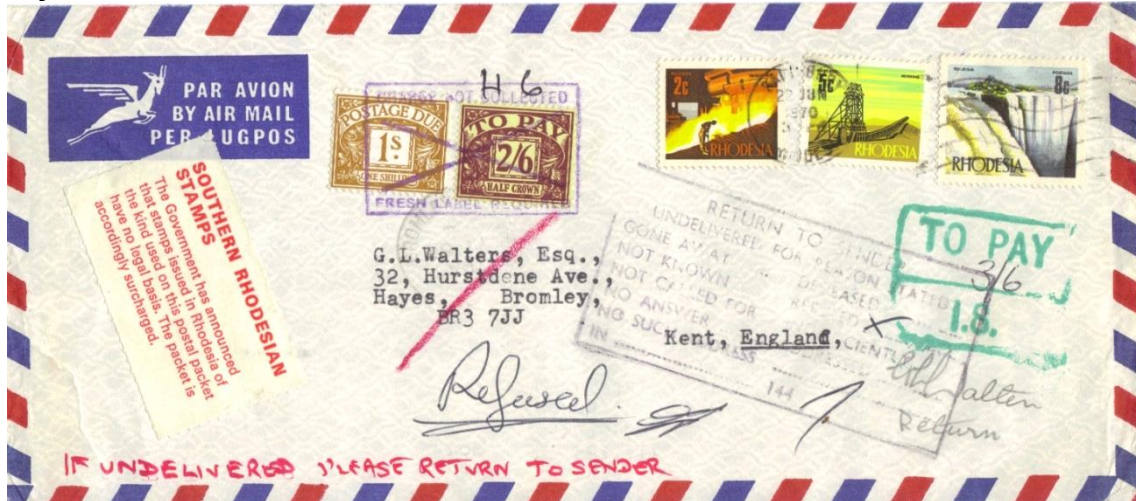 PAR AVION
BY AIR MAIL
PER LUGPOS
SOUTHERN RHODESIAN
STAMPS
The Government has announced
that stamps issued in Rhodesia of
the kind used on this postal packet
have no legal basis. The packet is
accordingly surcharged.
H 6
CHARGE NOT COLLECTED
FRESH LABEL REQUIRED
POSTAGE DUE
1s.
ONE SHILLING
TO PAY
2/6
HALF CROWN
2c
RHODESIA
5c
RHODESIA
8c
RHODESIA
22 JUN
1970
TO PAY
3/6
I.S.
RETURN TO SENDER
UNDELIVERED FOR REASON STATED
GONE AWAY
DECEASED
NOT KNOWN
NOT CALLED FOR
NO ANSWER
NO SUCH ADDRESS
IN
144
G.L.Walters, Esq.,
32, Hurstdene Ave.,
Hayes, Bromley,
BR3 7JJ
Kent, England,
Refused
Return
IF UNDELIVERED PLEASE RETURN TO SENDER